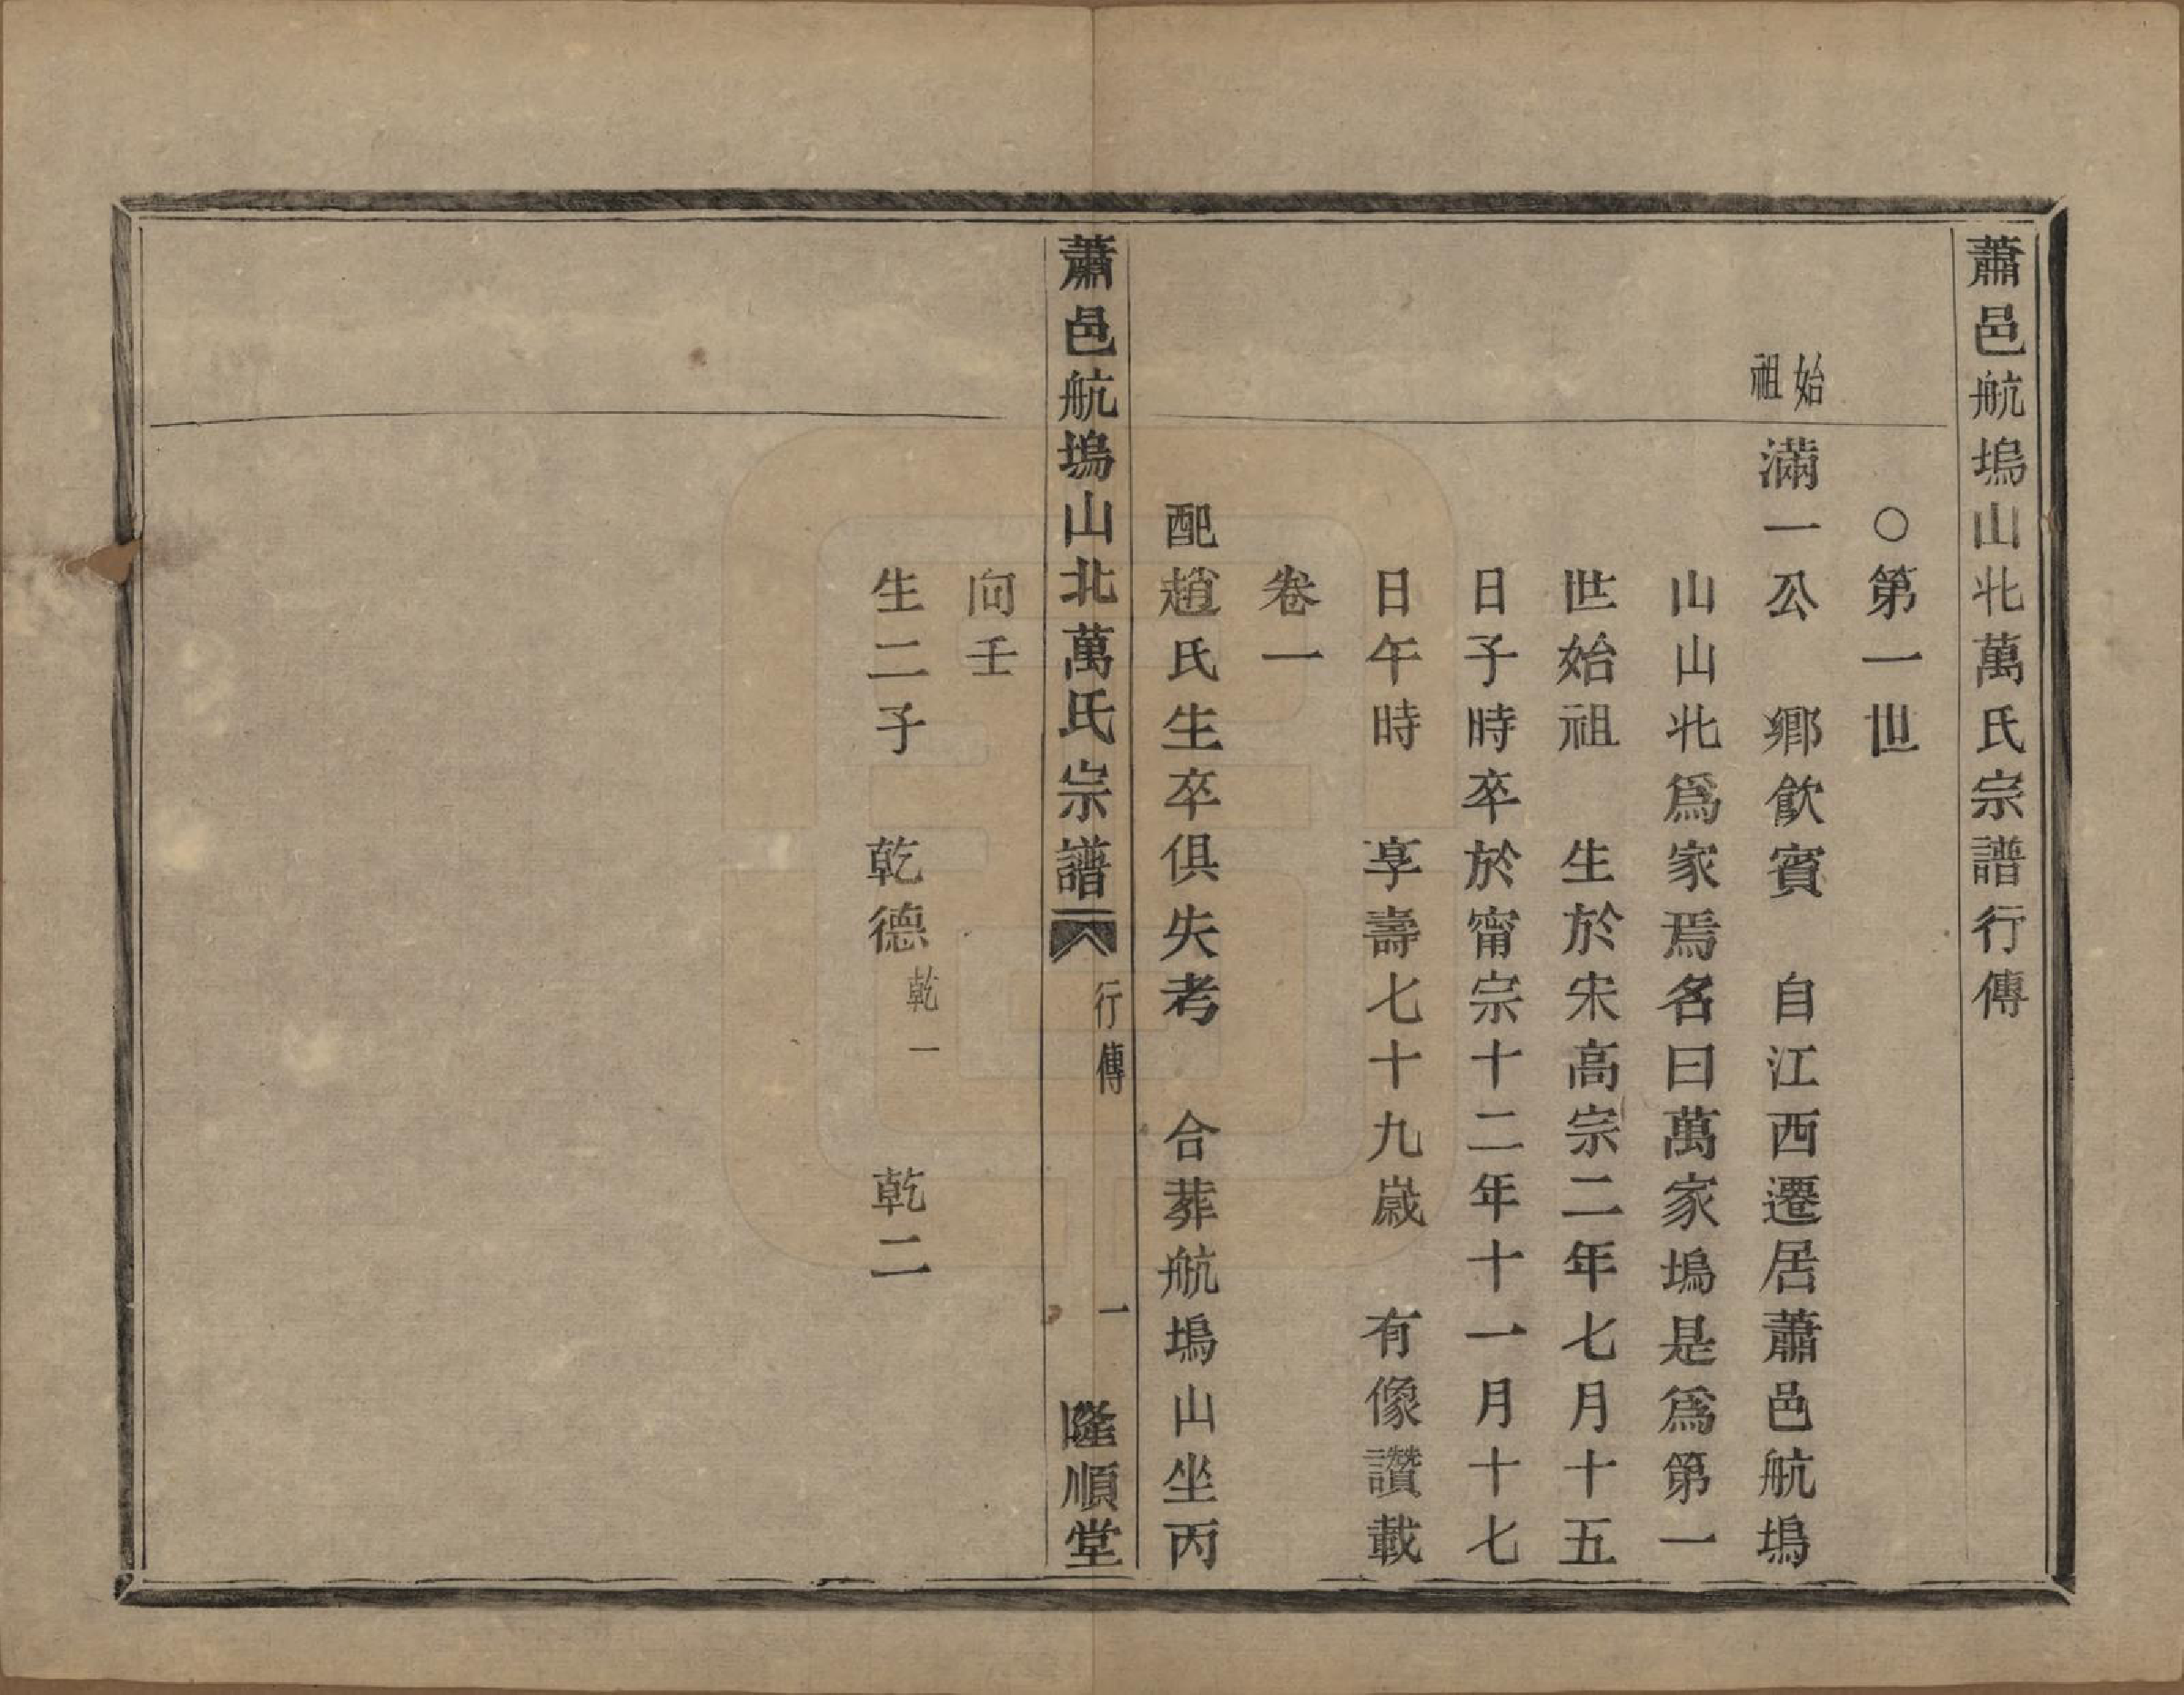 蕭邑航塢山北萬氏宗譜行傳
○第一世
始祖
滿一公　鄉飲賓　自江西遷居蕭邑航塢
山山北爲家焉名曰萬家塢是爲第一
世始祖　生於宋高宗二年七月十五
日子時卒於甯宗十二年十一月十七
日午時　享壽七十九歲　有像讚載
卷一
配趙氏生卒俱失考　合葬航塢山坐丙
蕭邑航塢山北萬氏宗譜　行傳　一　隆順堂
向壬
生二子　乾德乾一　乾二